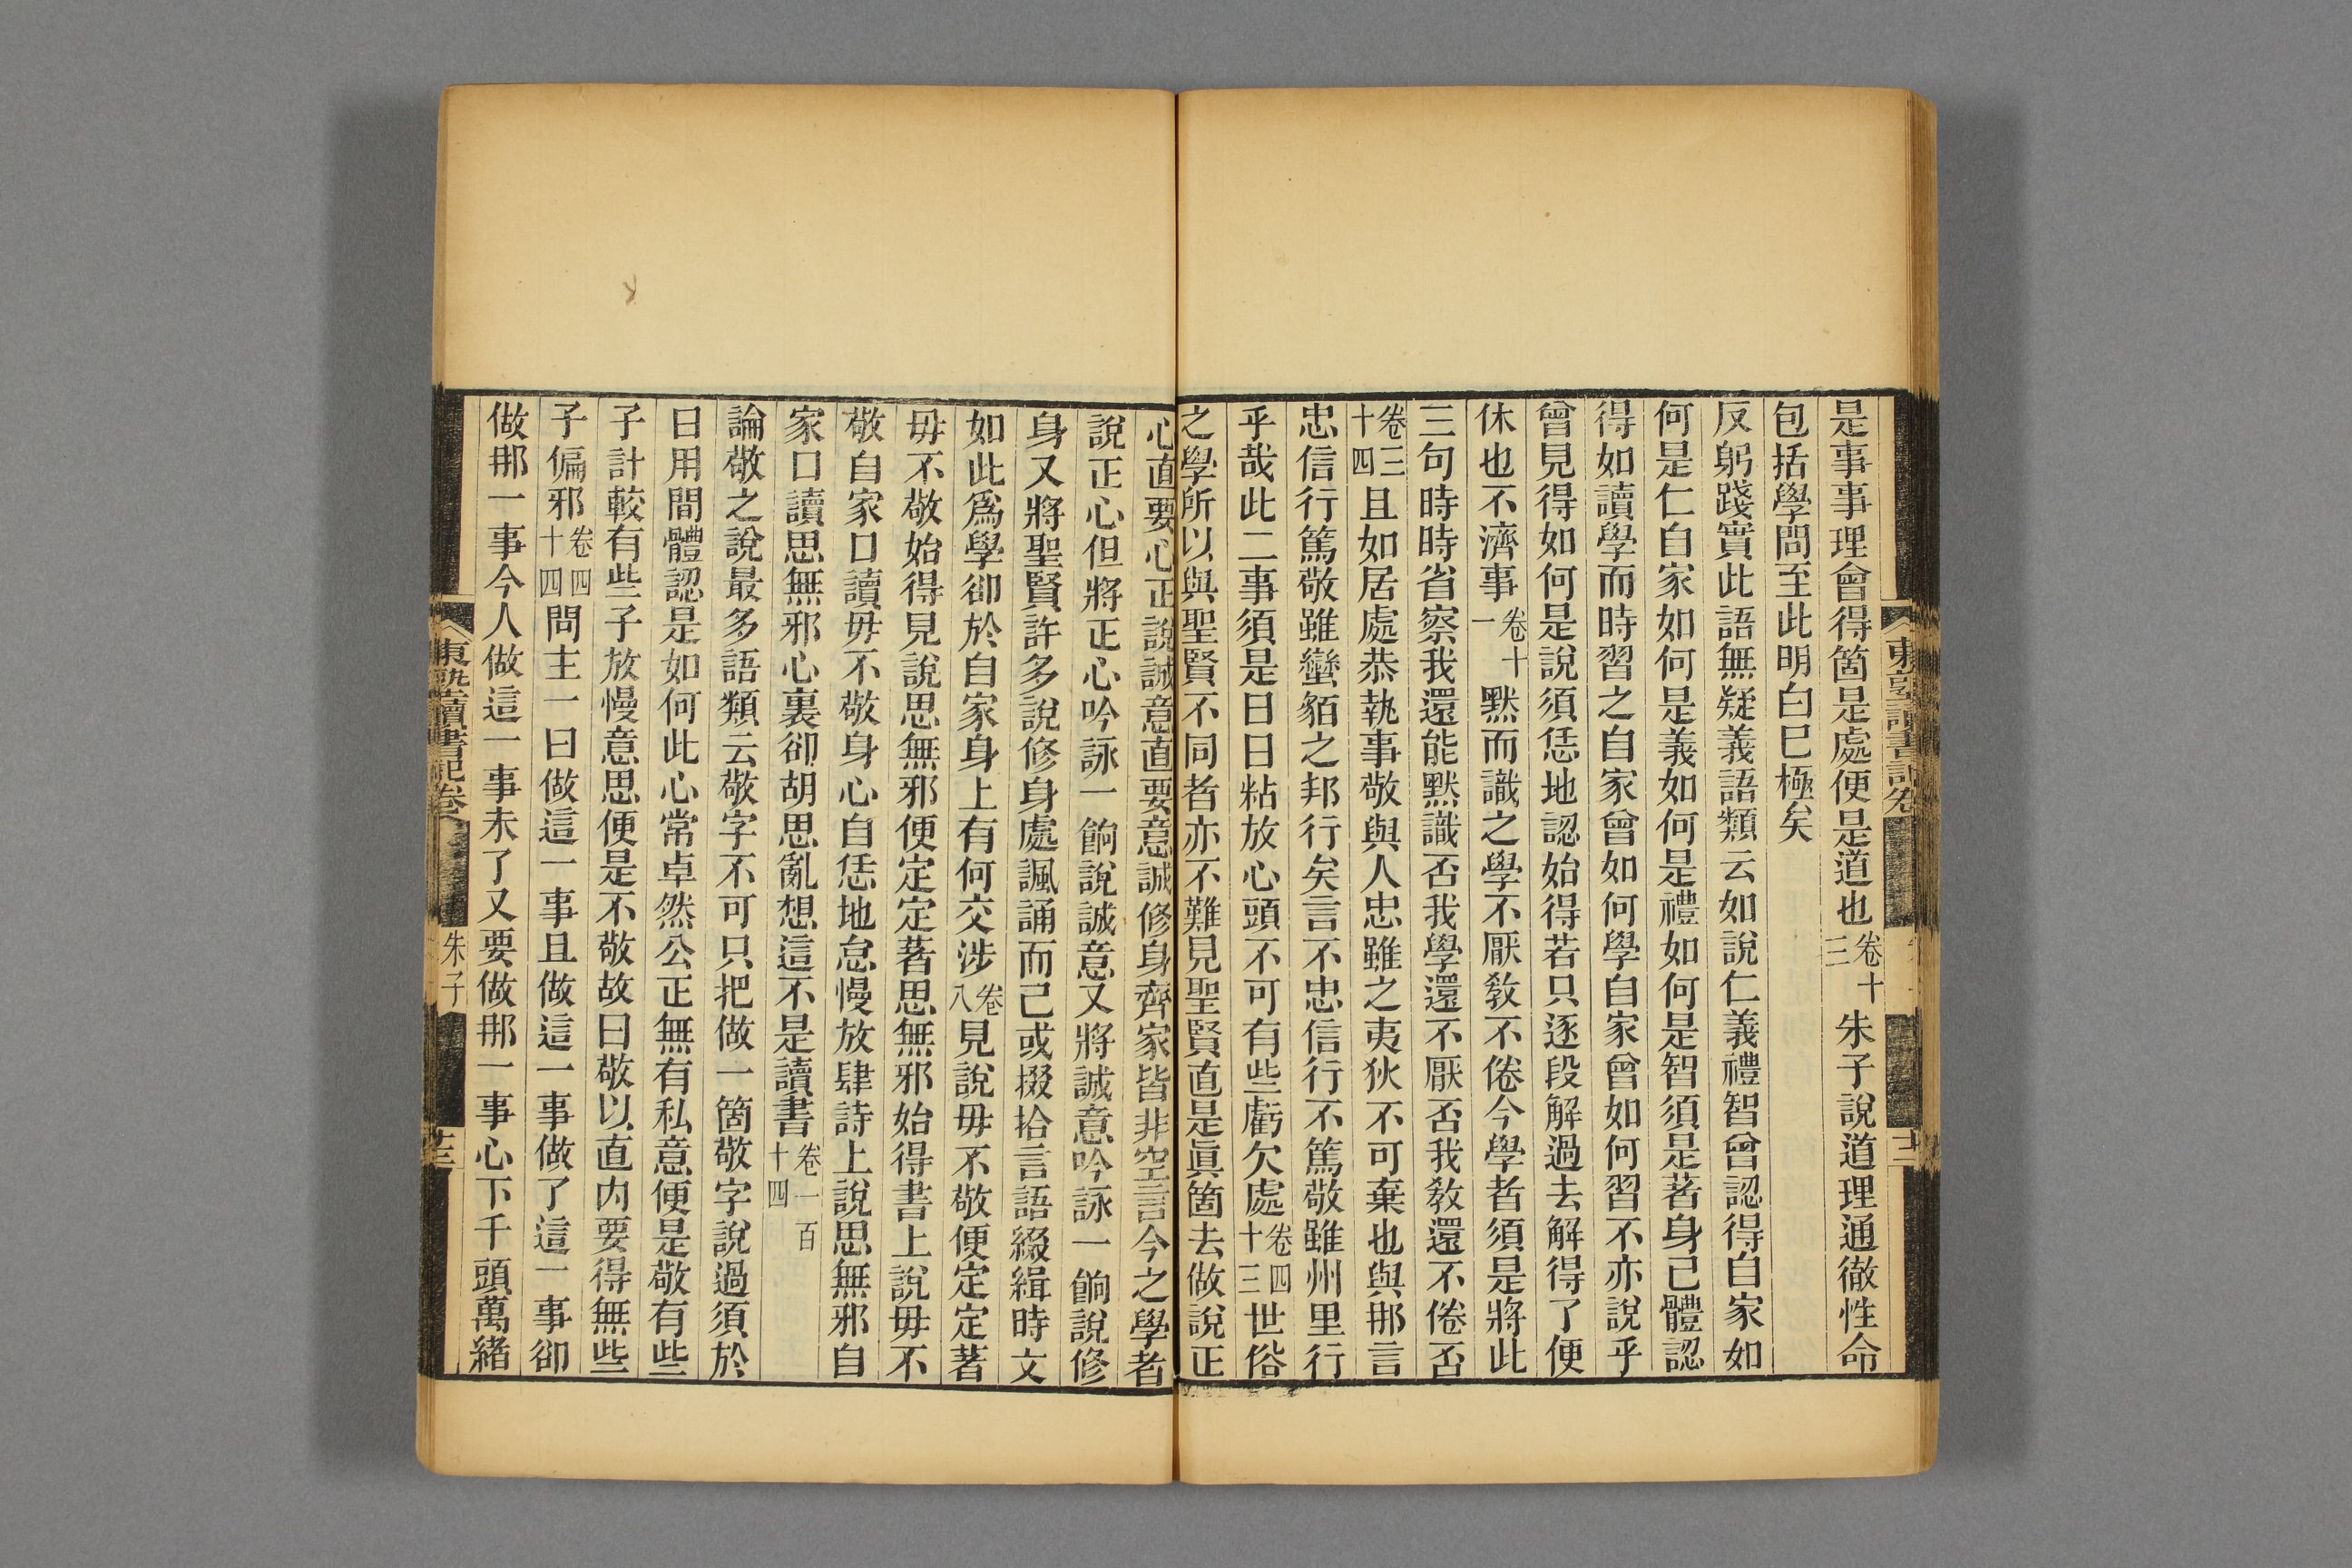 是事事理會得箇是處便是道也卷十三朱子說道理通徹性命
包括學問至此明白已極矣
反躬踐實此語無疑義語類云如說仁義禮智曾認得自家如
何是仁自家如何是義如何是禮如何是智須是著身己體認
得如讀學而時習之自家曾如何學自家曾如何習不亦說乎
曾見得如何是說須恁地認始得若只逐段解過去解得了便
休也不濟事卷十一默而識之學不厭敎不倦今學者須是將此
三句時時省察我還能默識否我學還不厭否我敎還不倦否
卷三十四且如居處恭執事敬與人忠雖之夷狄不可棄也與那言
忠信行篤敬雖蠻貊之邦行矣言不忠信行不篤敬雖州里行
乎哉此二事須是日日粘放心頭不可有些虧欠處卷四十三世俗
之學所以與聖賢不同者亦不難見聖賢直是眞箇去做說正
心直要心正說誠意直要意誠修身齊家皆非空言今之學者
說正心但將正心吟詠一餉說誠意又將誠意吟詠一餉說修
身又將聖賢許多說修身處諷誦而已或掇拾言語綴緝時文
如此爲學卻於自家身上有何交涉卷八見說毋不敬便定定著
毋不敬始得見說思無邪便定定著思無邪始得書上說毋不
敬自家口讀毋不敬身心自恁地怠慢放肆詩上說思無邪自
家口讀思無邪心裏卻胡思亂想這不是讀書卷一百十四
論敬之說最多語類云敬字不可只把做一箇敬字說過須於
日用間體認是如何此心常卓然公正無有私意便是敬有些
子計較有些子放慢意思便是不敬故曰敬以直內要得無些
子偏邪卷四十四問主一曰做這一事且做這一事做了這一事卻
做那一事今人做這一事未了又要做那一事心下千頭萬緒
東塾讀書記卷
朱子
廿三